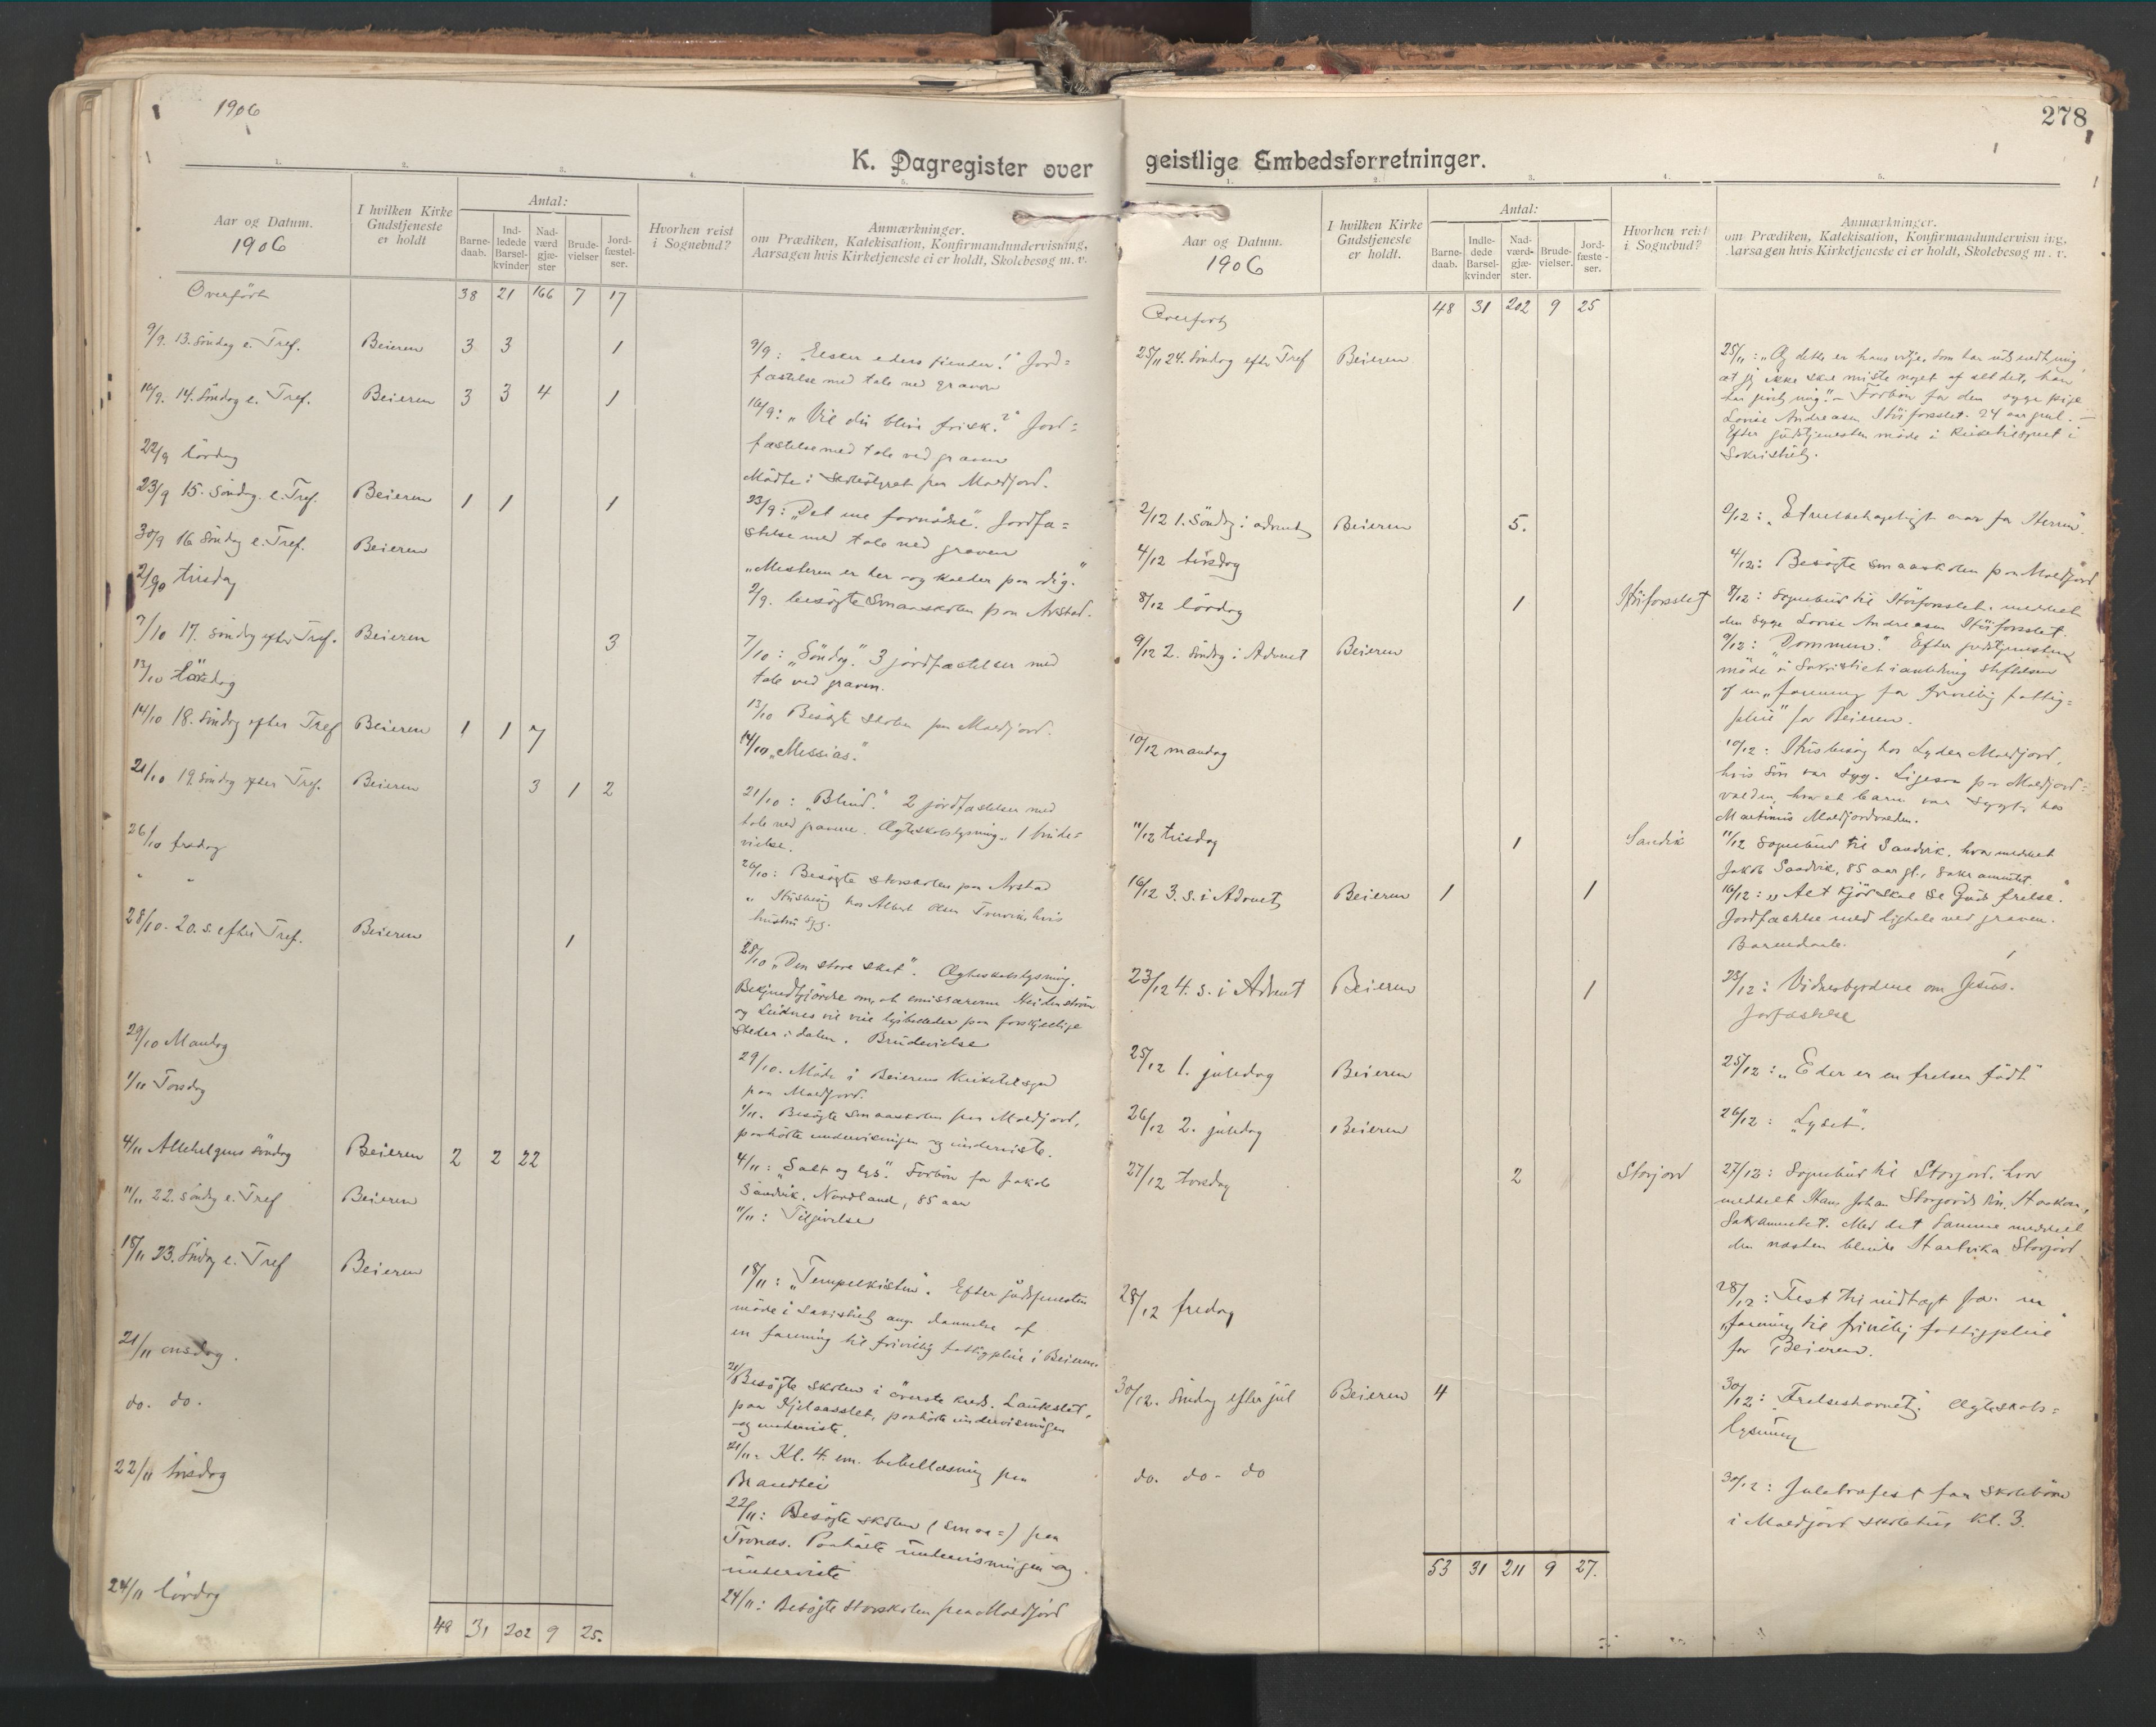 1906
278
K. Dagregister over geistlige Embedsforretninger.
1. 2. 3. 4. 5.
Aar og Datum.
1906
I hvilken Kirke
Gudstjeneste
er holdt
Antal:
Barne-
daab.
Ind-
ledede
Barsel-
kvinder
Nad-
værd
gjæ-
ster
Brude-
vielser
Jord-
fæstel-
ser.
Hvorhen reist
i Sognebud?
Anmærkninger.
om Prædiken, Katekisation, Konfirmandundervisning,
Aarsagen hvis Kirketjeneste ei er holdt, Skolebesøg m. v.
Overført 38 21 166 7 17
9/9. 13. Søndag e. Tref. Beieren 3 3 1
9/9: "Elsker eders fiender!" Jord=
fæstelse med tale ved graven
16/9. 14. Søndag e. Tref. Beieren 3 3 4 1
16/9: "Vil du blive frisk?" Jord=
fæstelse med tale ved graven
22/9 lørdag
Mødte i Skolestyret paa Moldjord.
23/9 15. Søndag. e. Tref. Beieren 1 1 1
23/9: "Det ene fornødne". Jordfæ=
stelse med tale ved graven
30/9 16 Søndag e. Tref. Beieren
"Mesteren er her og kalder paa dig."
tirsdag
2/9. besøgte Smaaskolen paa Arstad.
7/10 17. Søndag efter Tref. Beieren 3
7/10: "Søndag." 3 jordfæstelser med
tale ved graven.
13/10 Lørdag
13/10 Besøgte skolen paa Moldjord.
14/10 18. Søndag efter Tref Beieren 1 1 7
14/10 "Messias."
21/10 19. Søndag efter Tref. Beieren 3 1 2
21/10: "Blind." 2 jordfæstelser med
tale ved graven. Ægteskabslysning. 1 brude=
vielse.
26/10 fredag
26/10: Besøgte storskolen paa Arstad
" "
" Husbesøg hos Albert Olsen hvis
hustru syg.
28/10. 20. s. efter Tref. Beieren 1
28/10 "Den store skat". Ægteskabslysning.
Bekjendtgjørelse om, at emissærerne
og vil vise lysbilleder paa forskjellige
steder i dalen. Brudevielse
29/10 Mandag
29/10. Møde i Beierens Kirketilsyn
paa Moldjord.
1/11 Torsdag
1/11. Besøgte Smaaskolen paa Moldjord,
paahørte undervisningen og underviste.
4/11 Allehelgens søndag Beieren 2 2 22
4/11: "Salt og lys". Forbøn for Jakob
Sandvik. Nordland, 85 aar
11/11 22. Søndag e. Tref Beieren
11/11: Tilgivelse
18/11 23. Søndag e. Tref Beieren
18/11: "Tempelkisten". Efter gudstjenesten
møde i sakristiet ang. dannelse af
en forening til frivillig fattigpleie i Beieren.
21/11 onsdag.
21/11 Besøgte skolen i øverste kreds.
paa paahørte undervisningen
og underviste.
do. do.
21/11. Kl. 4. em. bibellæsning paa
22/11 torsdag
22/11: Besøgte skolen (smaa=) paa
Trones. Paahørte undervisningen og
underviste
24/11 lørdag
24/11: Besøgte storskolen paa Moldjord
48 31 202 9 25.
1. 2. 3. 4. 5.
Aar og Datum.
1906
I hvilken Kirke
Gudstjeneste
er holdt.
Antal:
Barne-
daab.
Indle-
dede
Barsel-
kvinder
Nad-
værd-
gjæ-
ster.
Brude-
vielser.
Jord-
fæste-
ser.
Hvorhen reist
i Sognebud?
Anmærkninger.
om Prædiken, Katekisation, Konfirmandundervisning,
Aarsagen hvis Kirketjeneste ei er holdt, Skolebesøg m. v.
Overført 48 31 202 9 25
25/11 24. Søndag efter Tref Beieren
25/11: "Og dette er hans vilje, som har udsendt mig,
at jeg ikke skal miste noget af alt det, han
har givet mig." – Forbøn for den syge pige
Lovise Andreasen 24 aar gml. –
Efter gudstjenesten møde i Kirketilsynet i
Sakristiet.
2/12 1. Søndag i advent Beieren 5.
2/12: "Et velbehageligt aar for Herren".
4/12 tirsdag
4/12: Besøgte smaaskolen paa Moldjord
8/12 lørdag 1
8/12: Sognebud til meddelt
den syge Lovise Andreasen
9/12 2. Søndag i Advent Beieren
9/12: "Dommen". Efter gudstjenesten
møde i Sakristiet i anledning stiftelsen
af en "forening for frivillig fattig=
pleie" for Beieren.
10/12 mandag
10/12: Husbesøg hos Lyder Moldjord,
hvis søn var syg. Ligesaa paa Moldjord=
volden, hvor et barn var sygt, hos
Martinus Moldjordvolden.
11/12 tirsdag 1 Sandvik
11/12 Sognebud til Sandvik, hvor meddelt
Jakob Sandvik, 85 aar gl., sakramentet.
16/12 3. s. i Advent Beieren 1 1
16/12: "Alt kjød skal se Guds frelse."
Jordfæstelse med ligtale ved graven.
Barnedaab.
23/12 4. s. i Advent Beieren 1
23/12: Vidnesbyrdene om Jesus.
Jorfæstelse
25/12 1. juledag Beieren
25/12: "Eder er en frelser født"
26/12 2. juledag Beieren
26/12: "Lyset".
27/12 torsdag 2 Storjord
27/12: Sognebud til Storjord. hvor
meddelt Hans Johan Storjords søn, Haakon,
Sakramentet. Med det samme meddelt
den næsten blinde Hartvika Storjord
28/12 fredag
28/12: Fest til indtægt for en
"forening til frivillig fattigpleie"
for Beieren.
30/12. Søndag efter jul Beieren 4
30/12: Frelseshornet. Ægteskabs=
lysning
do. do- do
30/12: Juletræfest for skolebørn
i Moldjord skolehus kl. 3.
53 31 211 9 27.